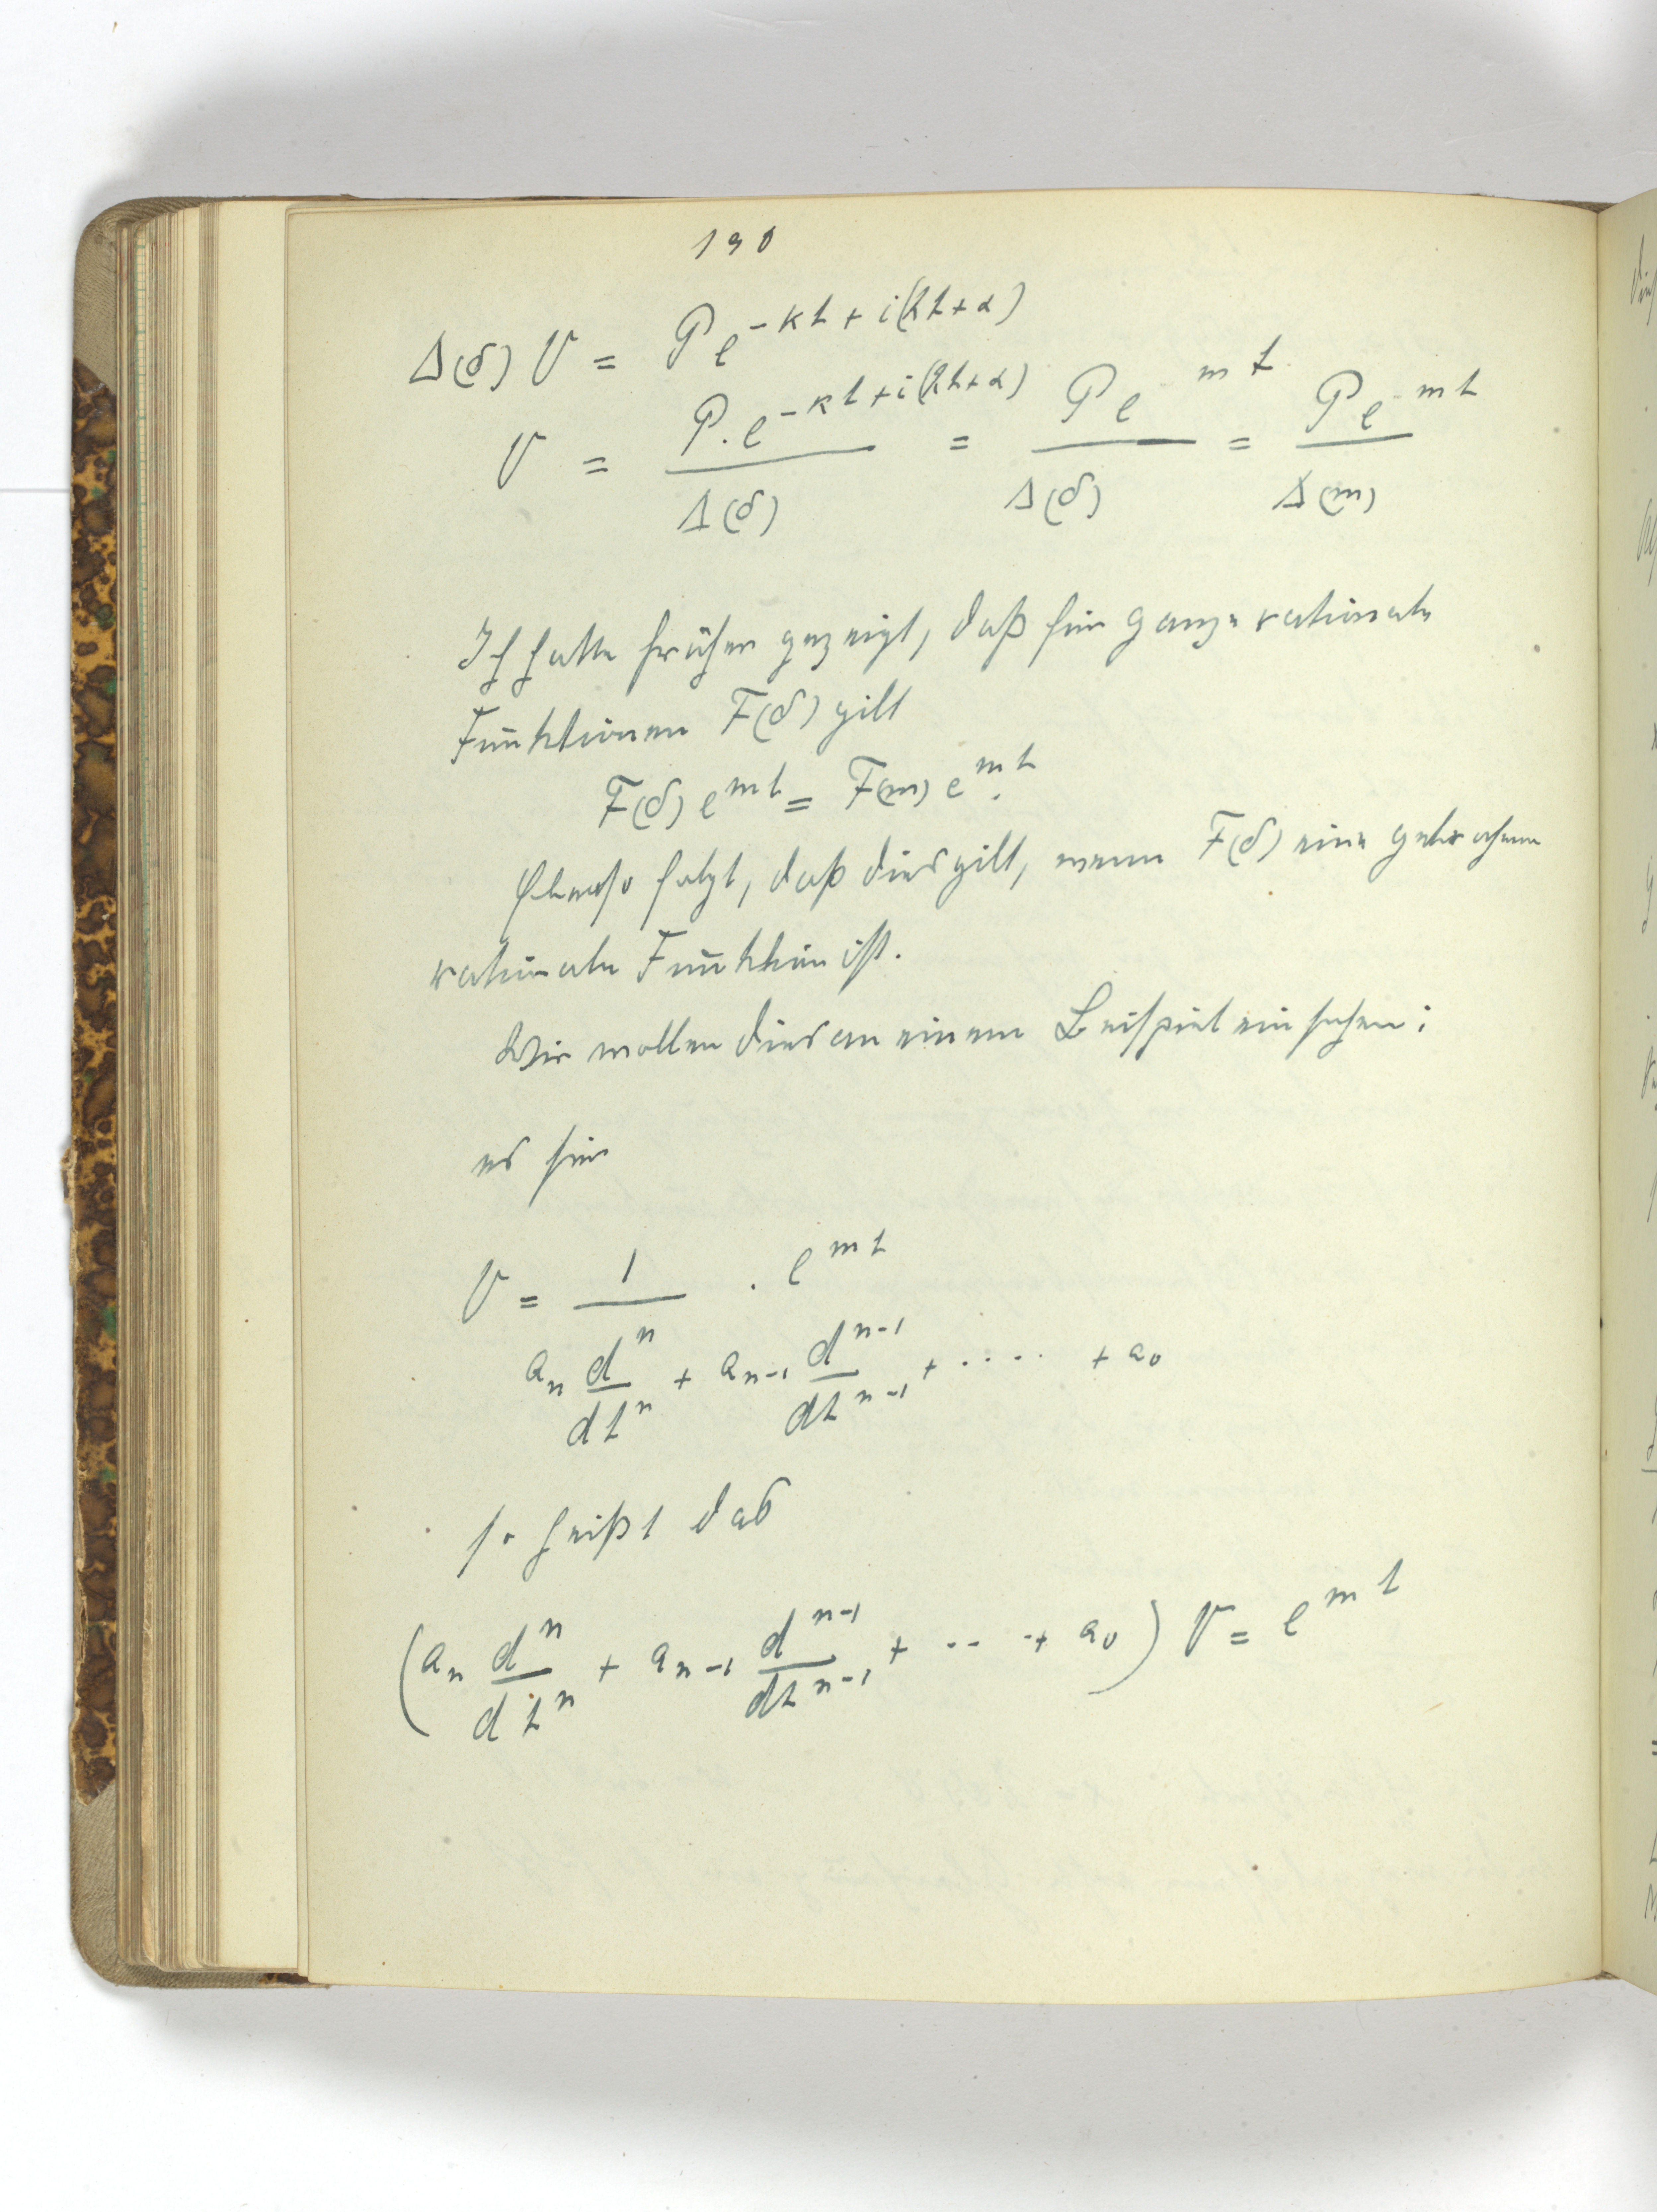 190
Δ(δ) V = P e^{-kt + i(ht + α)}
V = P. e^{-kt + i(ht + α)} / Δ(δ) = P e^{mt} / Δ(δ) = P e^{mt} / Δ(m)
Ich hatte früher gezeigt, daß für ganze rationale
Funktionen F(δ) gilt
F(δ) e^{mt} = F(m) e^{mt}.
Ebenso folgt, daß dies gilt, wenn F(δ) eine gebrochene
rationale Funktion ist.
Wir wollen dies an einem Beispiel einsehen:
es sei
V = 1 / (a_n d^n/dt^n + a_{n-1} d^{n-1}/dt^{n-1} + .... + a_0) . e^{mt}
so heißt das
(a_n d^n/dt^n + a_{n-1} d^{n-1}/dt^{n-1} + .. .+ a_0) V = e^{mt}